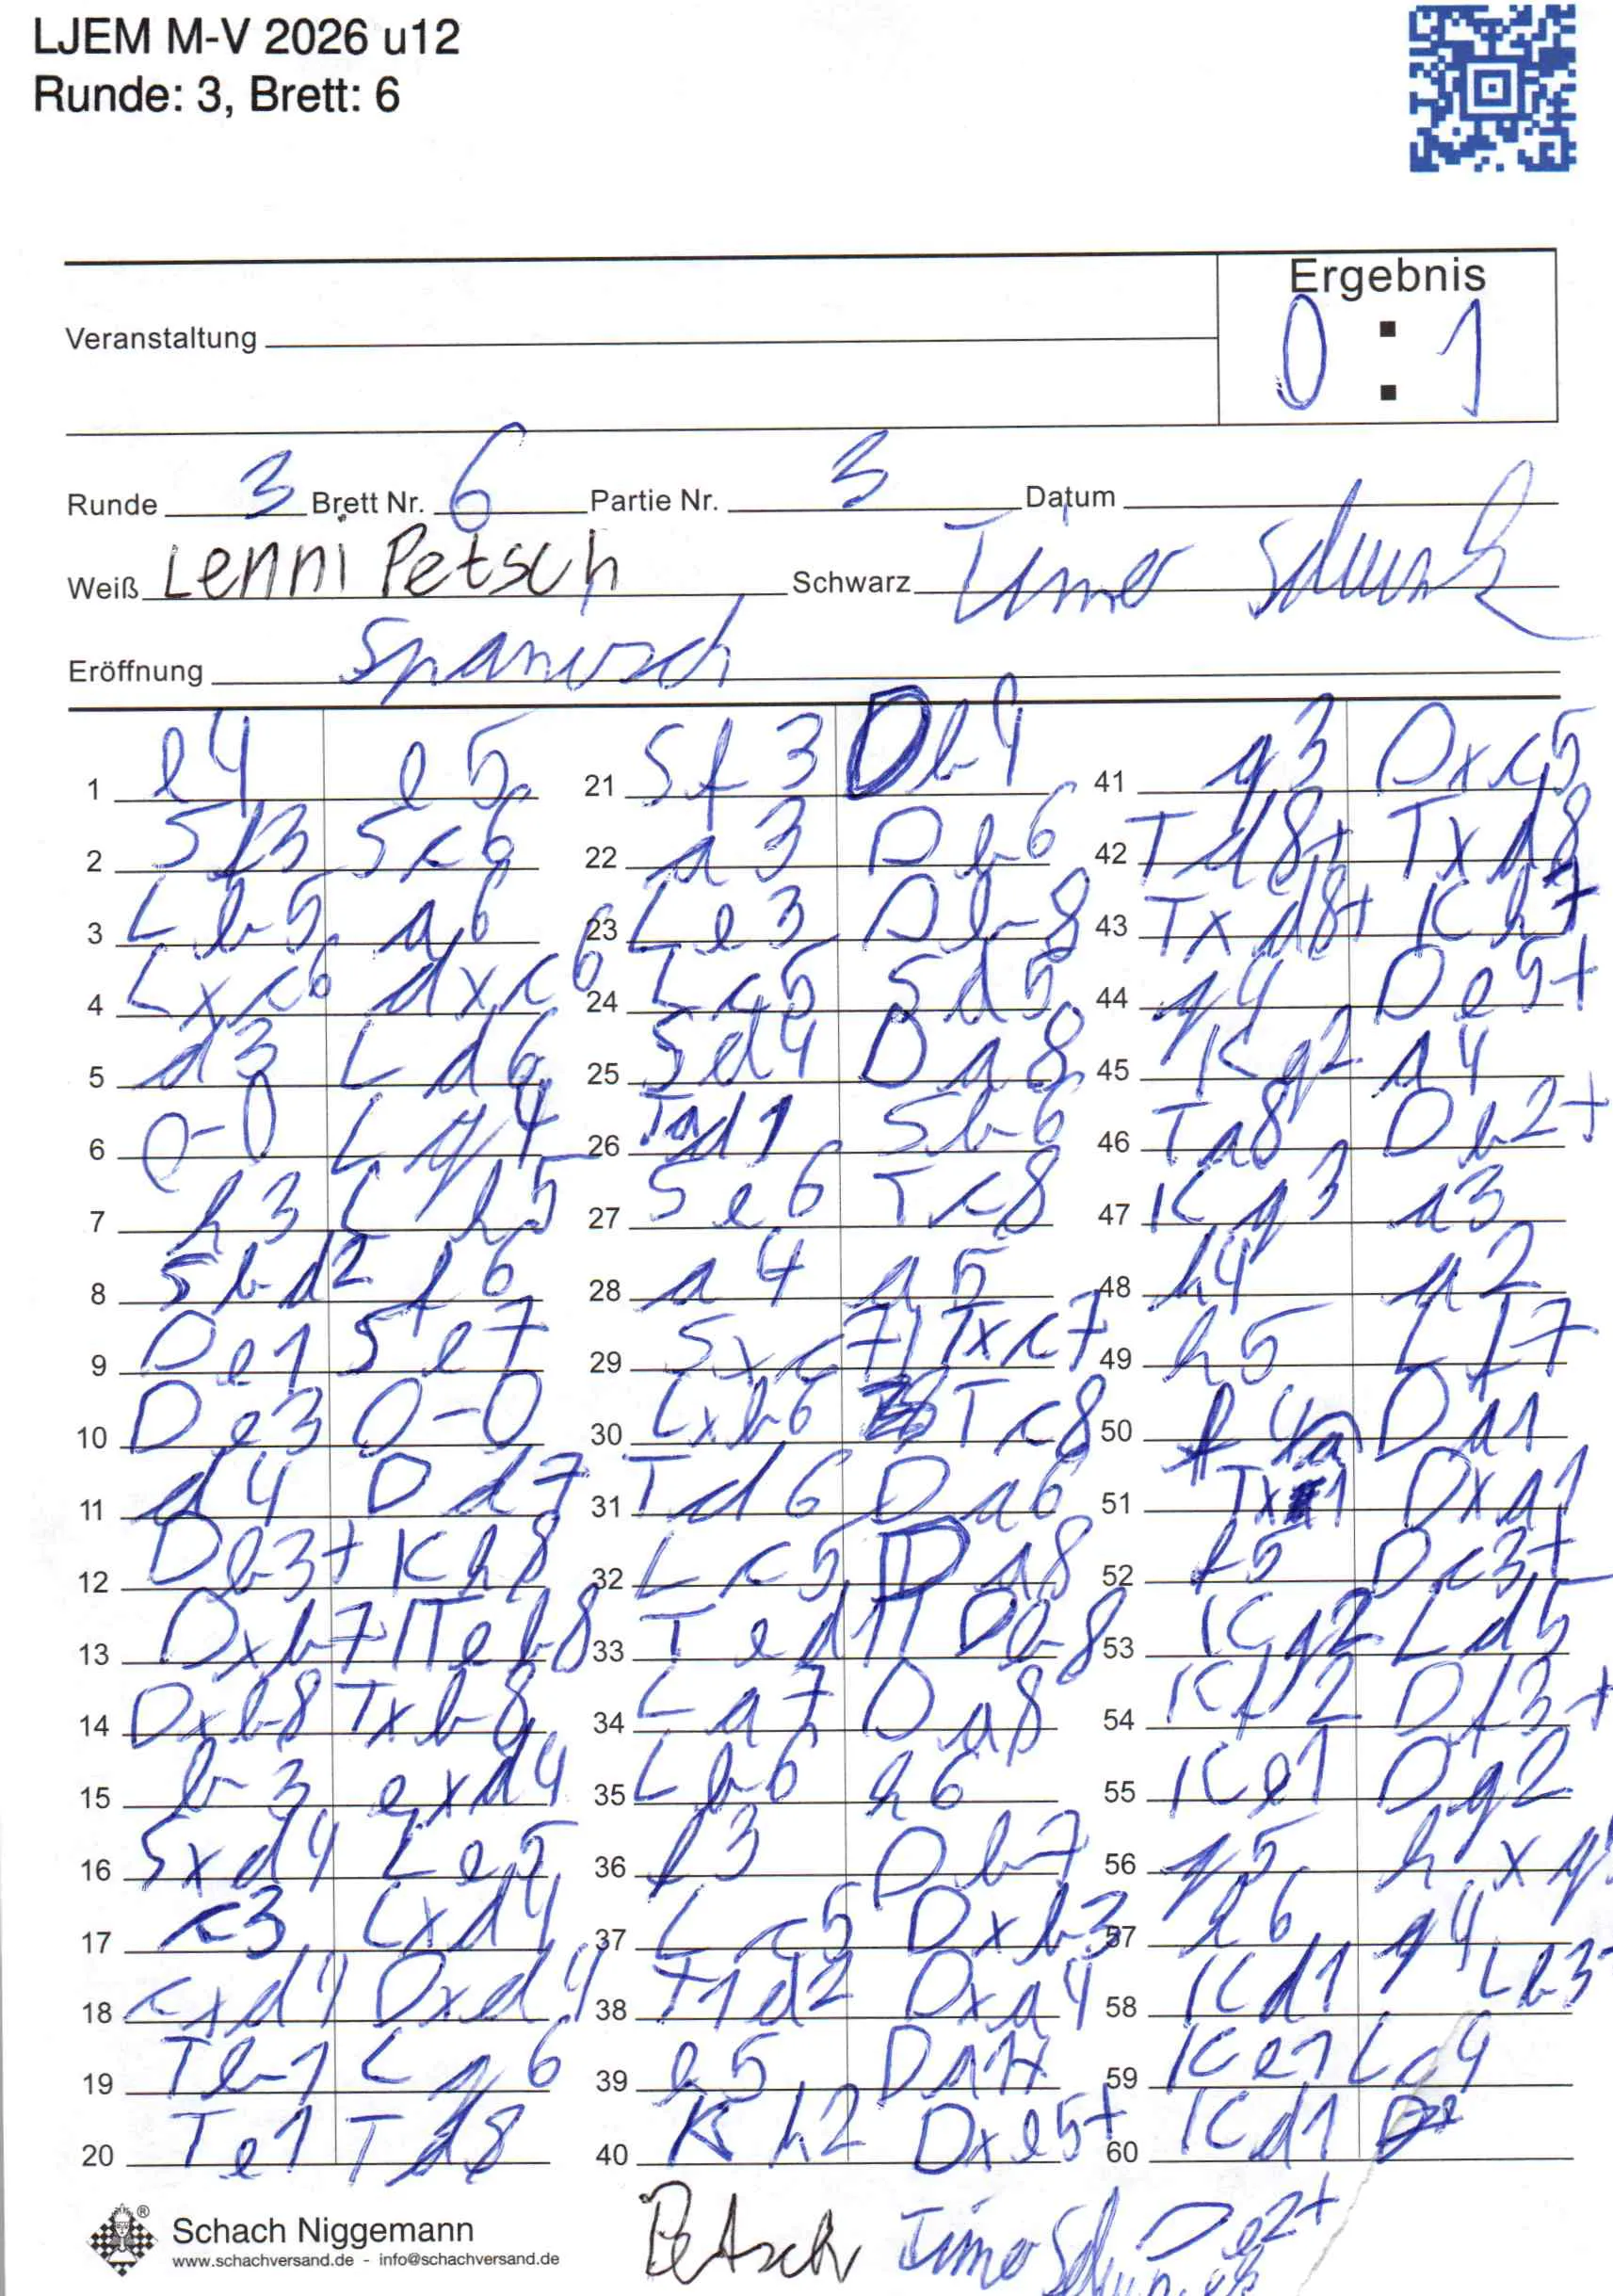 LJEM M-V 2026 u12
Runde: 3, Brett: 6
Ergebnis
Veranstaltung
0 : 1
Runde 3 Brett Nr. 6 Partie Nr. 3 Datum
Weiß Lenni Petsch Schwarz Timo
Eröffnung Spanisch
1 e4 e5
2 Sf3 Sc6
3 Lb5 a6
4 Lxc6 dxc6
5 d3 Ld6
6 0-0 Lg4
7 h3 Lh5
8 Sbd2 f6
9 De1 Se7
10 De3 0-0
11 d4 Dd7
12 Db3+ Kh8
13 Dxb7 Teb8
14 Dxb8 Txb8
15 b3 exd4
16 Sxd4 Le5
17 c3 Lxd4
18 cxd4 Dxd4
19 Tb1 Lg6
20 Te1 Td8
21 Sf3 Db4
22 a3 Db6
23 Le3 Db8
24 Lc5 Sd5
25 Sd4 Da8
26 Tad1 Sb6
27 Se6 Tc8
28 a4 a5
29 Sxc7 Txc7
30 Lxb6 Tc8
31 Td6 Da6
32 Lc5 Da8
33 Ted1 Db8
34 La7 Da8
35 Lb6 h6
36 f3 Db7
37 Lc5 Dxb3
38 T1d2 Dxa4
39 e5 Da1+
40 Kh2 Dxe5+
41 g3 Dxc5
42 Td8+ Txd8
43 Txd8+ Kh7
44 g4 De5+
45 Kg2 a4
46 Ta8 Db2+
47 Kg3 a3
48 h4 a2
49 h5 Lf7
50 f4 Da1
51 Txa1 Dxa1
52 f5 Dc3+
53 Kg2 Ld5
54 Kf2 Df3+
55 Ke1 Dg2
56 g5 hxg
57 h6 g4
58 Kd1 Lb3
59 Ke1 Lc4
60 Kd1
De2+
Petsch Timo
Schach Niggemann
www.schachversand.de - info@schachversand.de